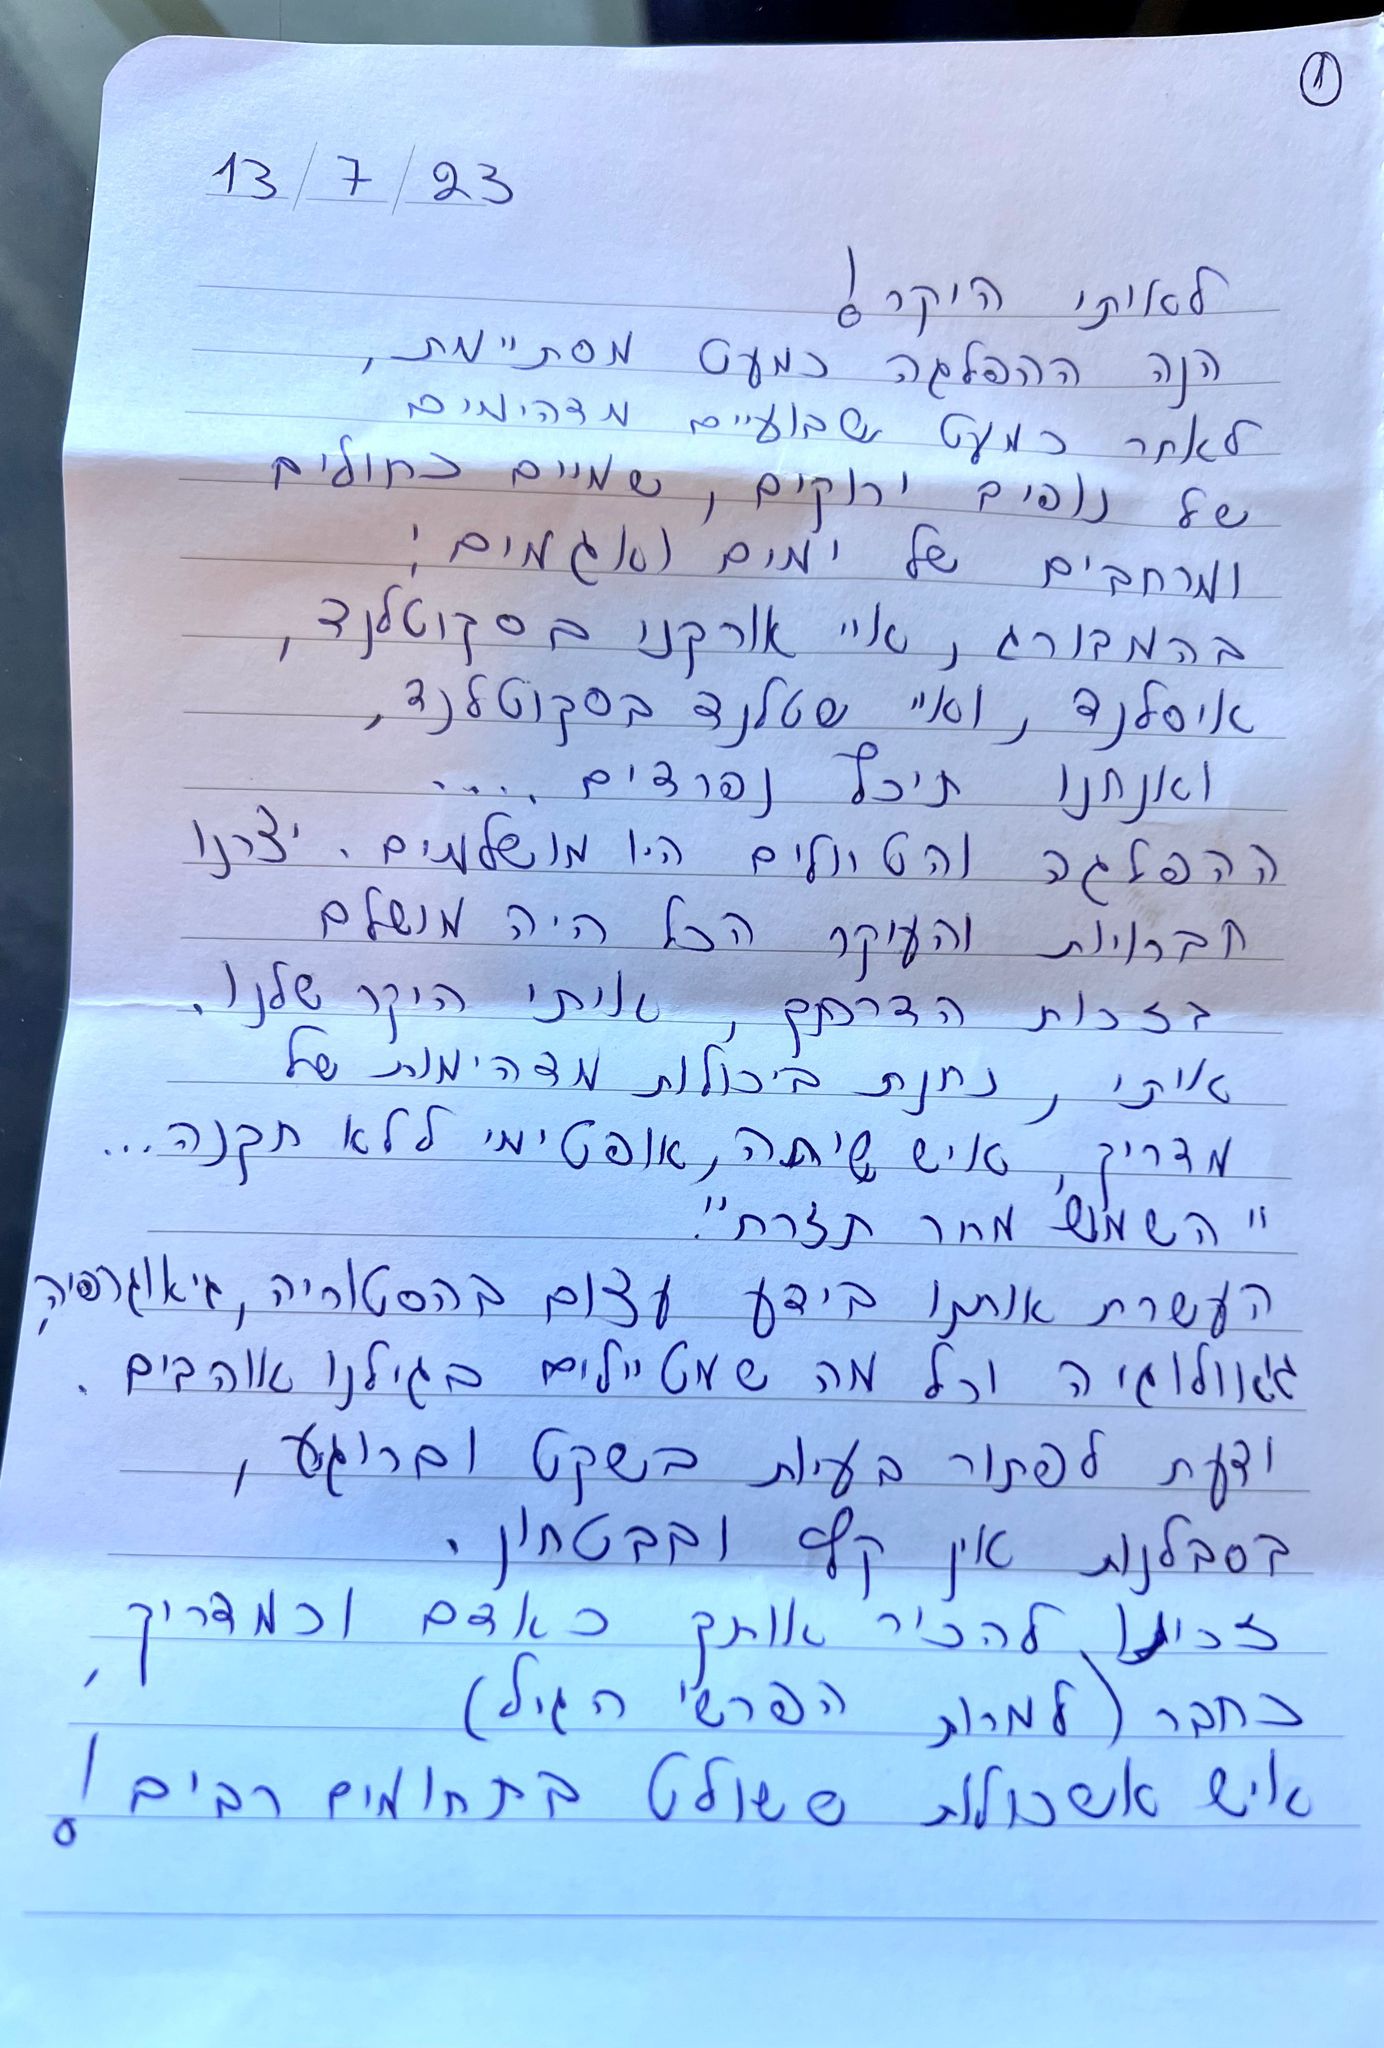 1
13/7/23
לאיתי היקר!
הנה ההפלגה כמעט מסתיימת,
לאחר כמעט שבועיים מדהימים
של נופים ירוקים, שמיים כחולים
ומרחבים של ימים ואגמים;
בהמבורג, איי אורקני בסקוטלנד,
איסלנד, ואיי שטלנד בסקוטלנד,
ואנחנו תיכף נפרדים ....
ההפלגה והטיולים היו מושלמים. יצרנו
חברויות והעיקר הכל היה מושלם
בזכות הדרכתך, איתי היקר שלנו.
איתי, נחנת ביכולות מדהימות של
מדריך, איש שיחה, אופטימי ללא תקנה...
"השמש מחר תזרח".
העשרת אותנו בידע עצום בהסטוריה, גיאוגרפיה,
גאולוגיה וכל מה שמטיילים בגילנו אוהבים.
ידעת לפתור בעיות בשקט וברוגע,
בסבלנות אין קץ ובבטחון.
זכינו להכיר אותך כאדם וכמדריך,
כחבר (למרות הפרשי הגיל)
איש אשכולות ששולט בתחומים רבים!